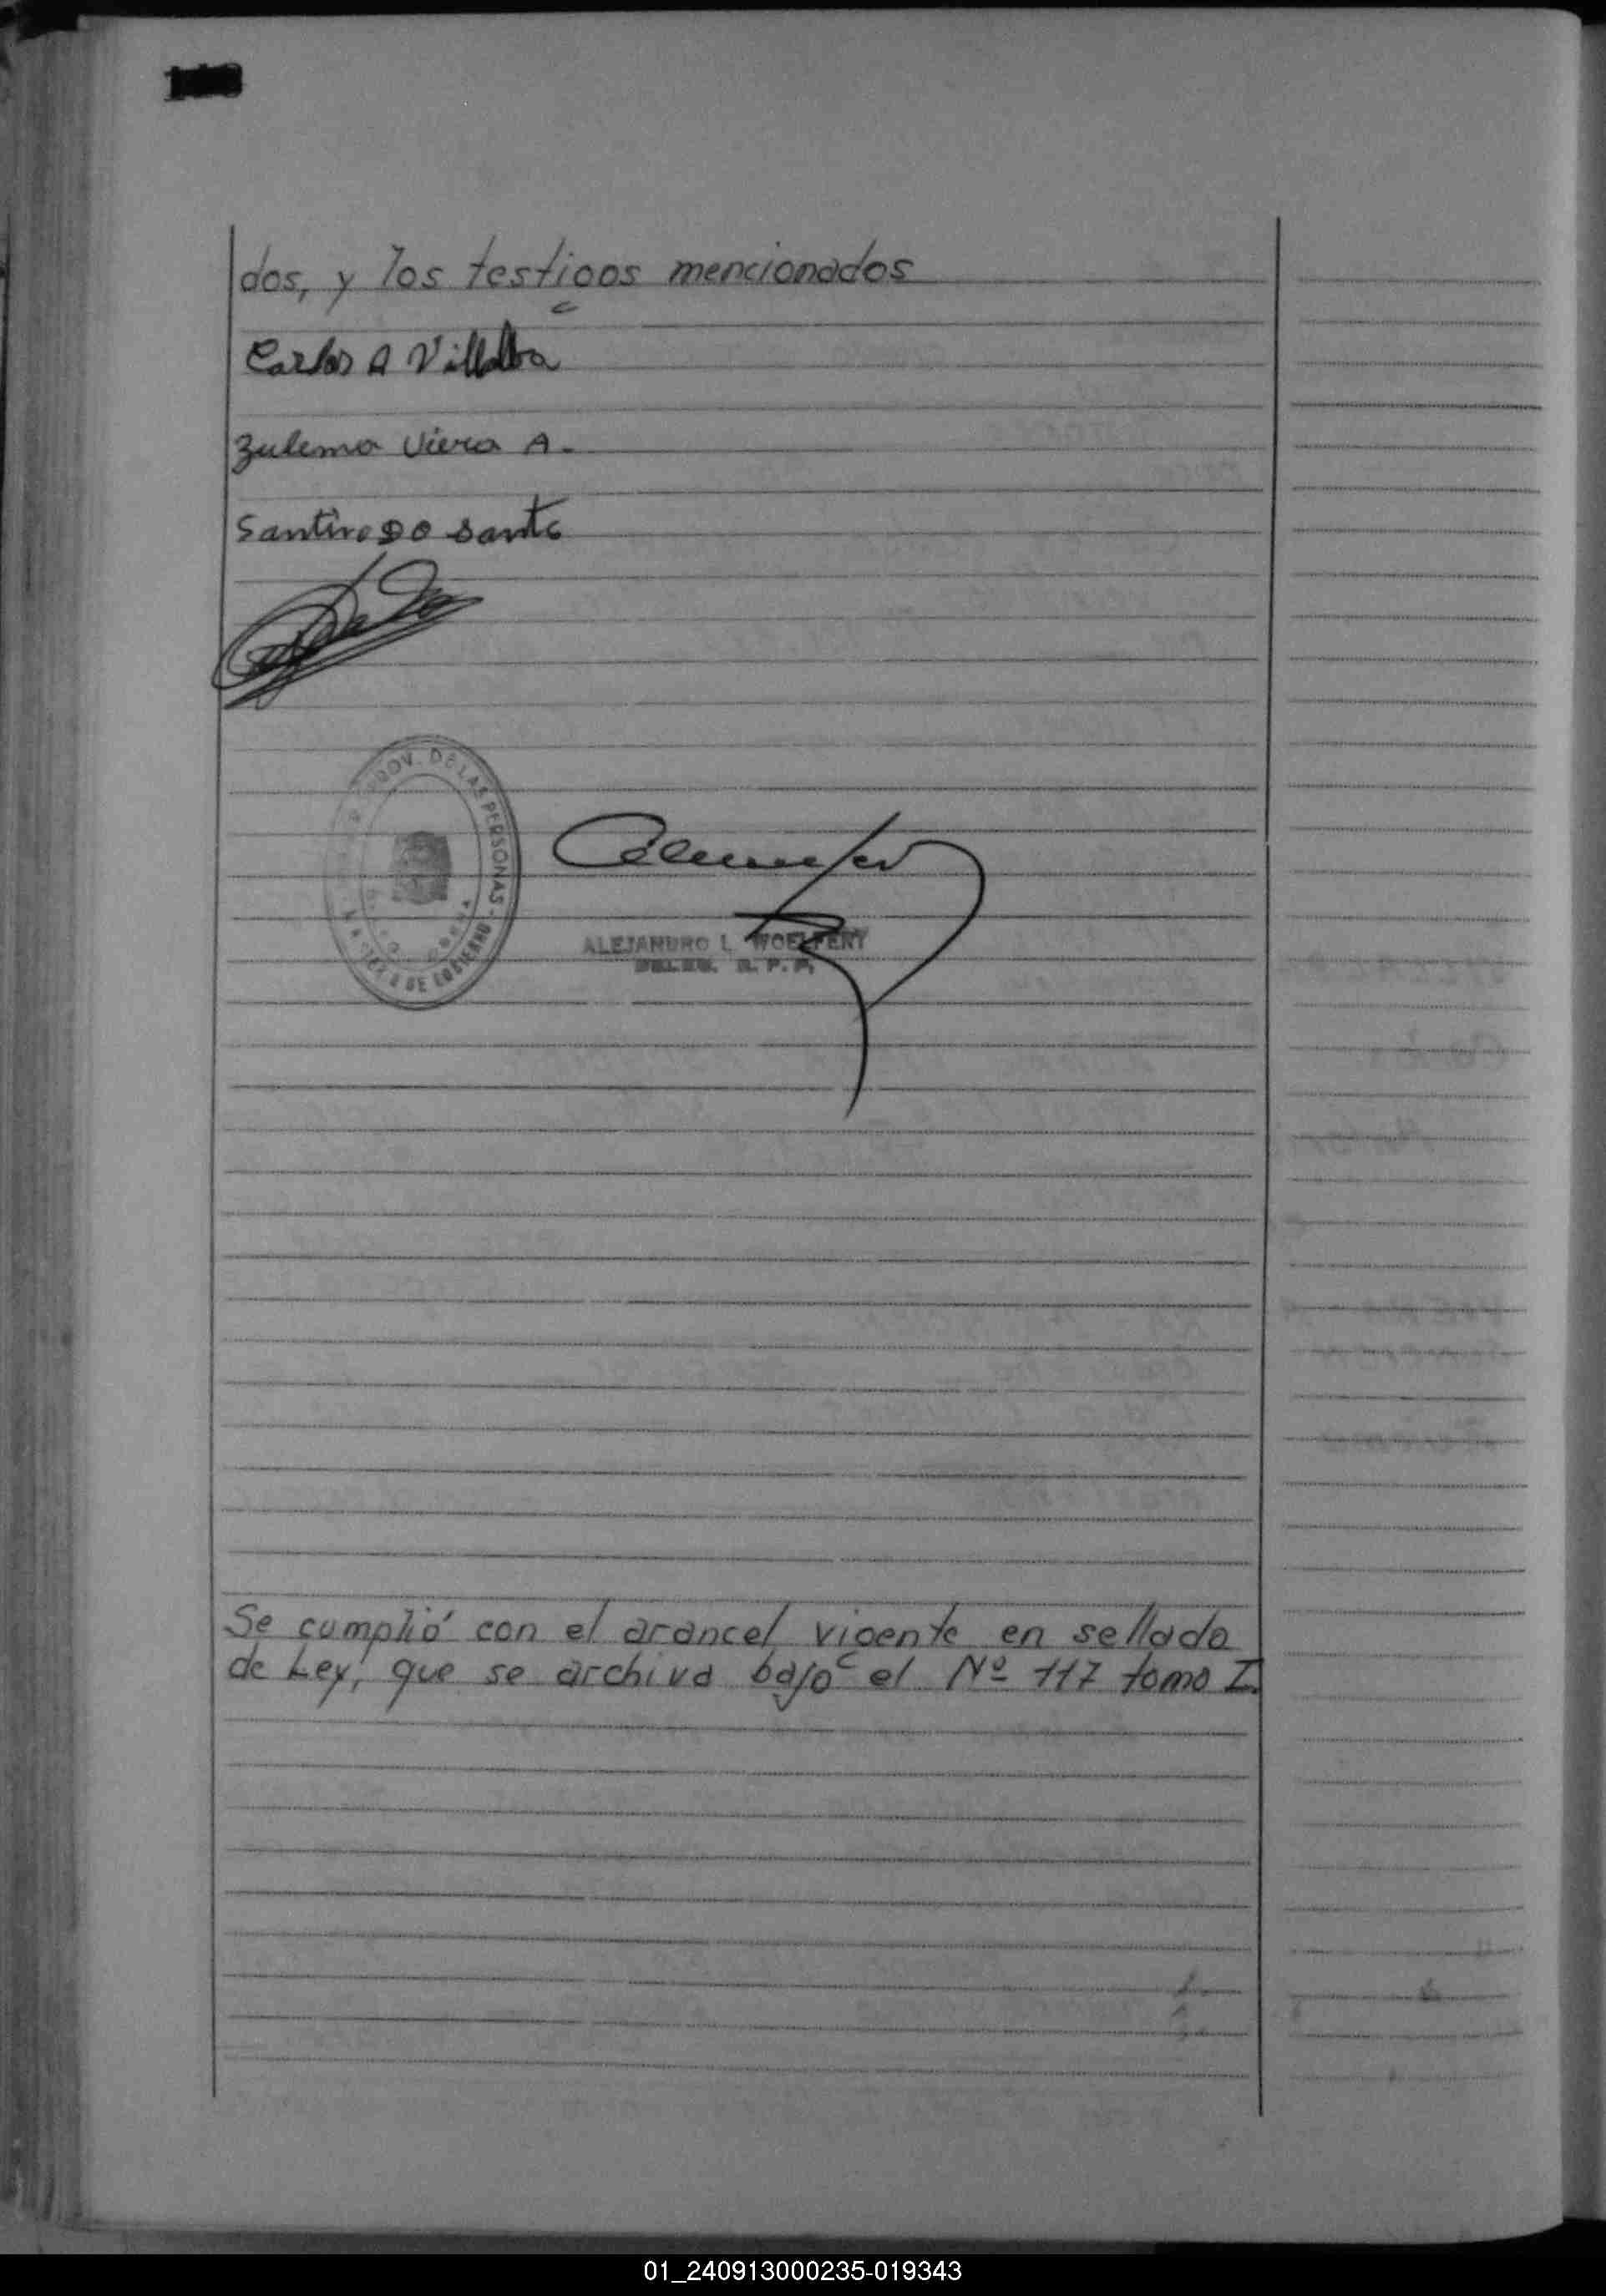 dos, y los testigos mencionados
Carlos A Villalba
Zulema Viera A.
Santiro DO Santo
PROV. DE LAS PERSONAS - DE GOBIERNO
ALEJANDRO L WOELFERT
DELEG. R. P. P.
Se cumplió con el arancel vigente en sellado
de Ley, que se archiva bajo el Nº 117 tomo I.
01_240913000235-019343